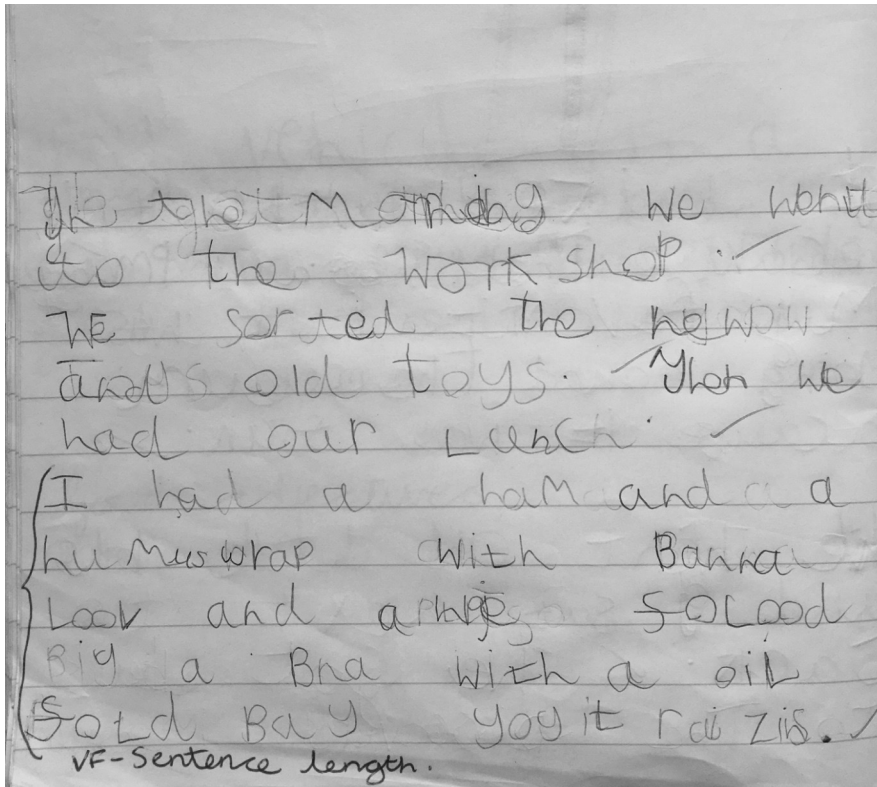 the Monday We went
to the work shop.
WE sorted the new
and old toys. Then we
had our Lunch.
I had a ham and a
humus wrap with Banna
Loov and a Solood
Big a Bna with a oil
Sold Bay yogit raiziis.
VF-Sentence length.